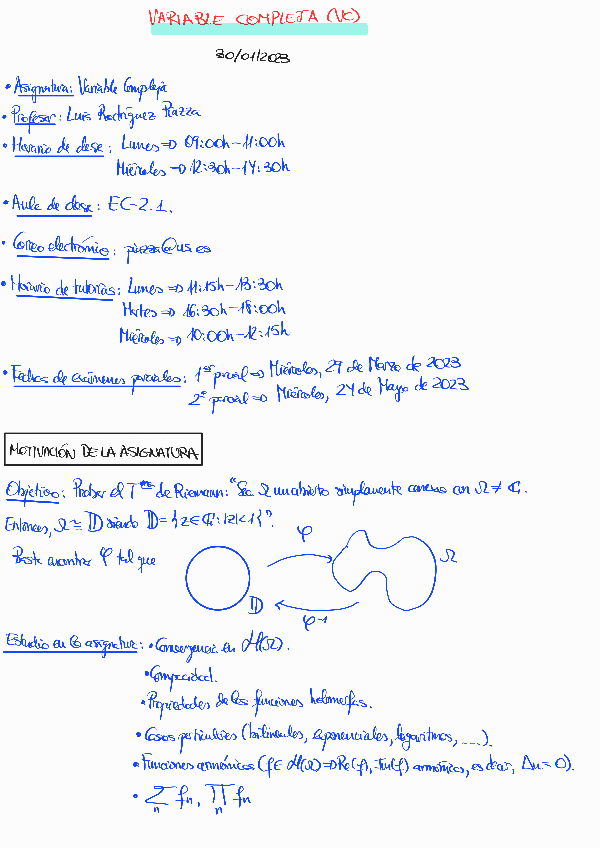 VARIABLE COMPLEJA (VC)
30/01/2023
• Asignatura: Variable Compleja
• Profesor: Luis Rodríguez Piazza
• Horario de clase: Lunes ⇒ 09:00h-11:00h
Miércoles ⇒ 12:30h-14:30h
• Aula de clase: EC-2.1.
• Correo electrónico: piazza@us.es
• Horario de tutorías: Lunes ⇒ 11:15h-13:30h
Martes ⇒ 16:30h-18:00h
Miércoles ⇒ 10:00h-12:15h
• Fechas de exámenes parciales: 1er parcial ⇒ Miércoles, 29 de Marzo de 2023
2º parcial ⇒ Miércoles, 24 de Mayo de 2023
MOTIVACIÓN DE LA ASIGNATURA
Objetivo: Probar el Tma de Riemann: "Sea Ω un abierto simplemente conexo con Ω ≠ ℂ.
Entonces, Ω ≅ 𝔻 siendo 𝔻 = {z ∈ ℂ: |z| < 1}".
Basta encontrar φ tal que
φ
Ω
𝔻
φ⁻¹
Estudio en la asignatura: • Convergencia en ℋ(Ω).
• Compacidad.
• Propiedades de las funciones holomorfas.
• Casos particulares (bilineales, exponenciales, logaritmos, ....).
• Funciones armónicas (f ∈ ℋ(Ω) ⇒ Re(f), Im(f) armónicas, es decir, Δu = 0).
• ∑ₙ fₙ, ∏ₙ fₙ